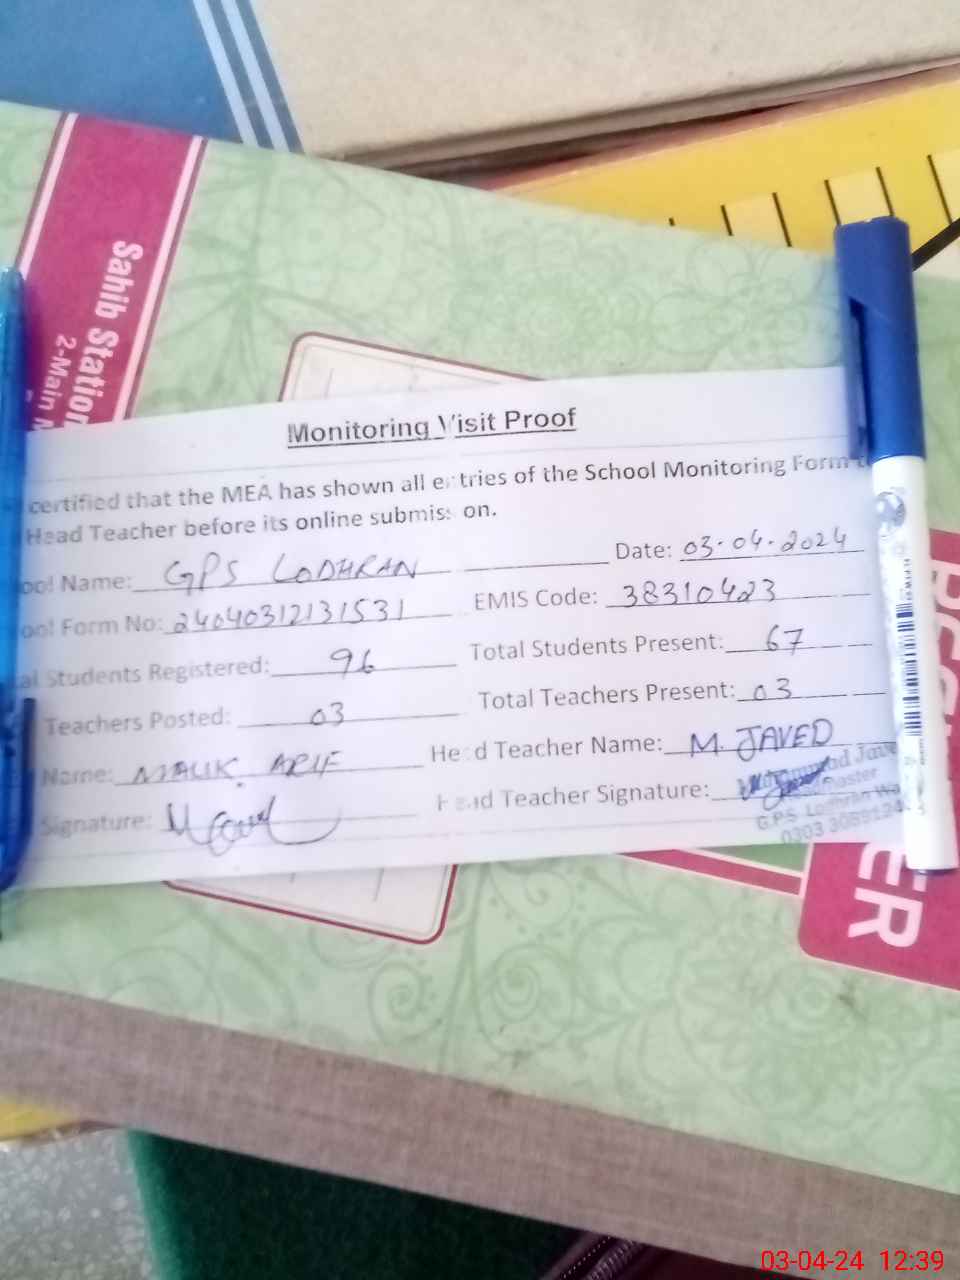 Sahib Station
2-Main
Monitoring Visit Proof
certified that the MEA has shown all entries of the School Monitoring Form
Head Teacher before its online submission.
Date: 03.04.2024
ool Name: GPS LODHRAN
EMIS Code: 38310423
ool Form No: 24040312131531
Total Students Present: 67
al Students Registered: 96
Total Teachers Present: 03
Teachers Posted: 03
Head Teacher Name: M. JAVED
Name: MALIK ARIF
Head Teacher Signature:
Signature:
Muhammad Jave
Headmaster
G.P.S. Lodhran Wa
ER
03-04-24 12:39